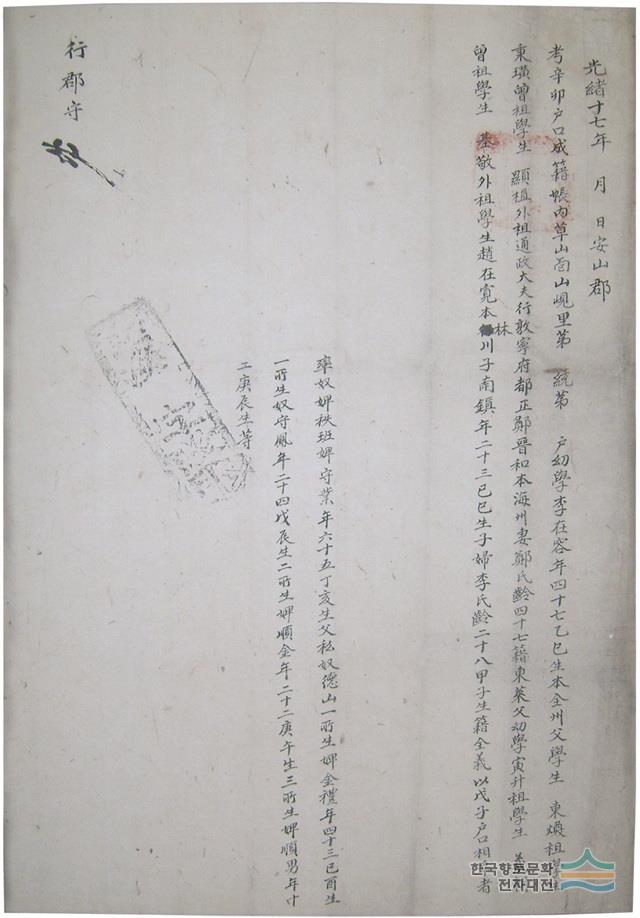 光緖十七年 月 日安山郡
考辛卯戶口成籍帳內草山面山峴里第 統第 戶幼學李在容年四十七乙巳生本全州父學生 東煥祖學生
東璜曾祖學生 顯植外祖通政大夫行敦寧府都正鄭晉和本海州妻鄭氏齡四十七籍東萊父幼學寅升祖學生
曾祖學生 基敬外祖學生趙在寬本林川子南鎭年二十三己巳生子婦李氏齡二十八甲子生籍全義以戊子戶口相 者
率奴婢秩班婢守業年六十五丁亥生父私奴德山一所生婢金禮年四十三己酉生
一所生奴守鳳年二十四戊辰生二所生婢順金年二十二庚午生三所生婢順男年十
二庚辰生等
行郡守
한국향토문화
전자대전